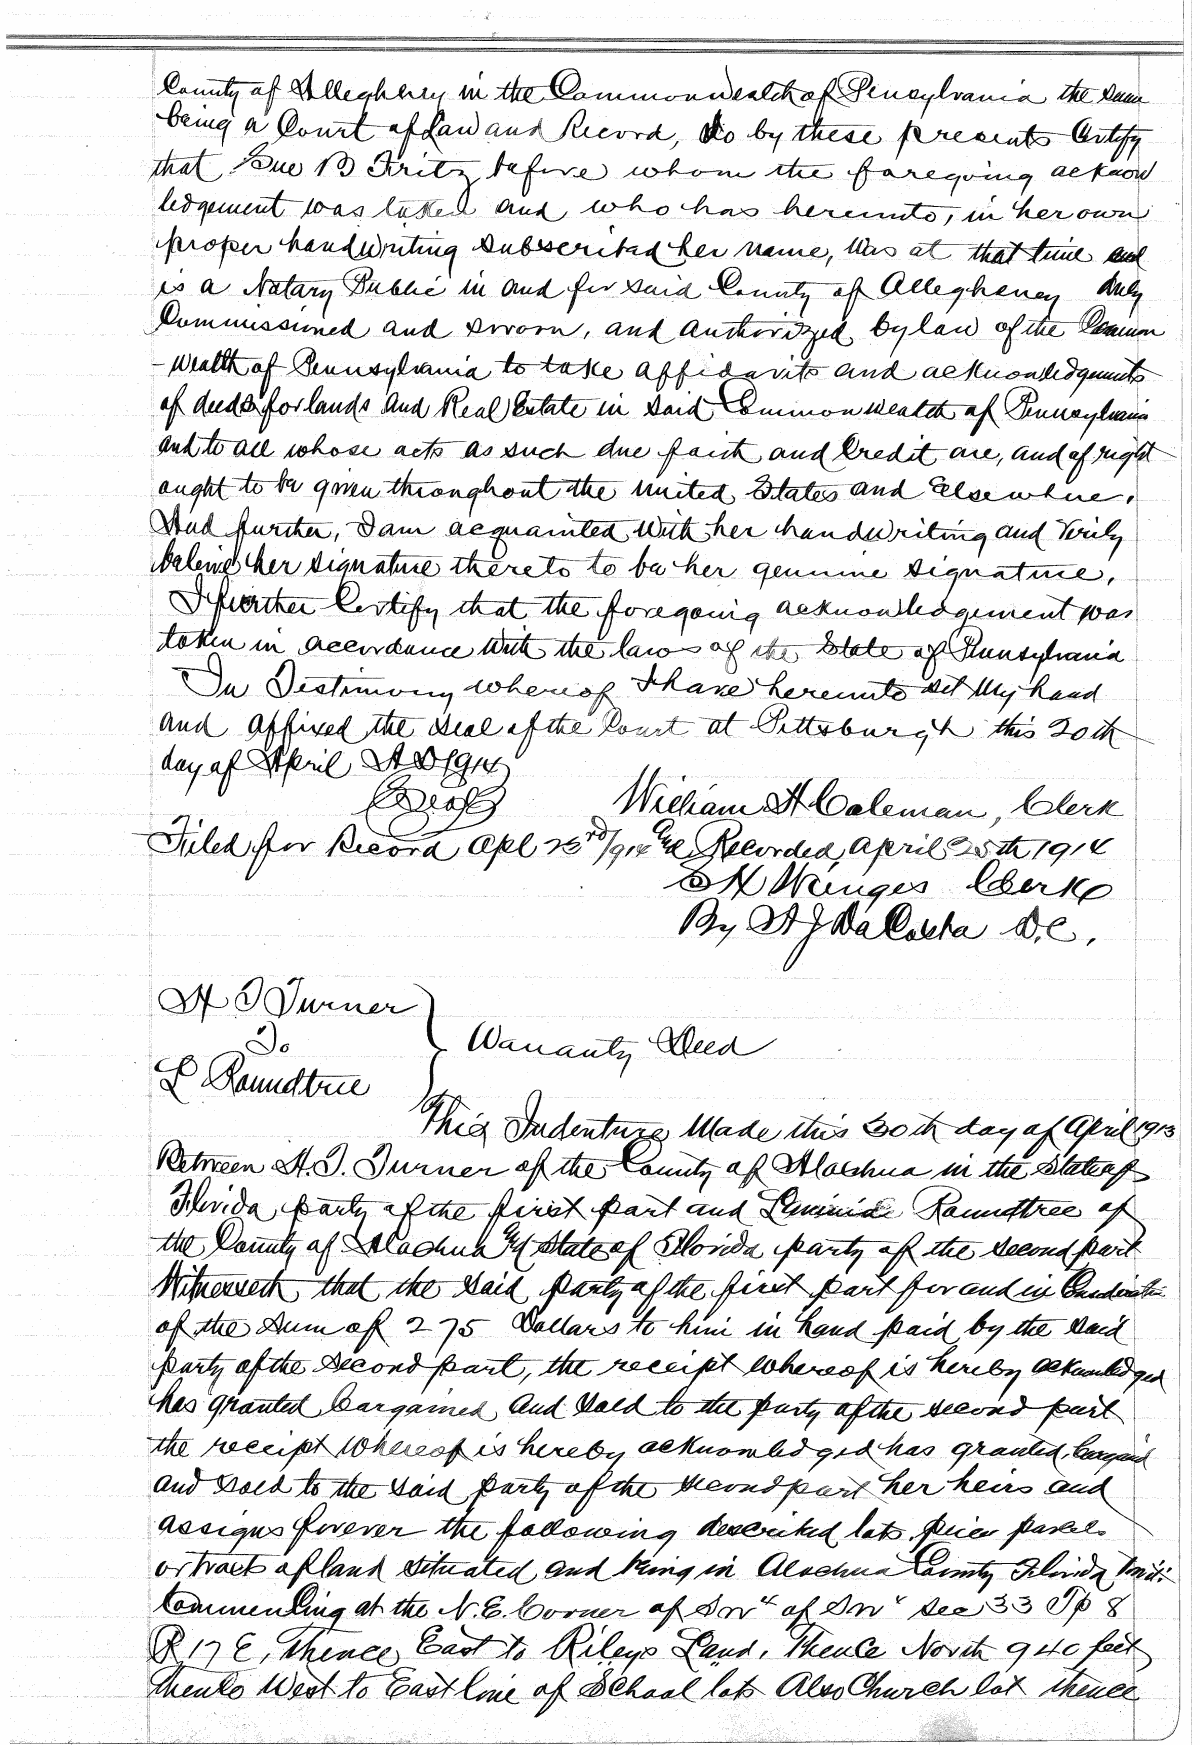 County of Allegheney in the Commonwealth of Pensylvania the same
being a Court of Law and Record, do by these presents Certify
that Sue B Fritz before whom the foregoing acknow
ledgement was taken and who has hereunto, in her own
proper handwriting subscribed her name, was at that time and
is a Notary Public in and for said County of Allegheney duly
Commissioned and sworn, and authorized by law of the Common
-wealth of Pennsylvania to take affidavits and acknowledgments
of deeds for lands and Real Estate in said Commonwealth of Pennsylvania
and to all whose acts as such due faith and Credit are, and of right
ought to be given throughout the United States and Elsewhere.
And further, I am acquainted with her handwriting and Verily
believe her signature thereto to be her genuine signature.
I further Certify that the foregoing acknowledgement was
taken in accordance with the laws of the State of Pennsylvania
In Testimony whereof I have hereunto set My hand
and affixed the seal of the Court at Pittsburgh this 20th
day of April A D 1914
(Seal) William H Coleman, Clerk
Filed for Record Apl 23rd/914 and Recorded April 25th 1914
S H Wienges Clerk
By A J DaCosta D.C.
H T Turner
To
L Roundtree
Warranty Deed
This Indenture Made this 30th day of April 1913
Between H. T. Turner of the County of Alachua in the State of
Florida party of the first part and Roundtree of
the County of Alachua and State of Florida party of the second part
Witnesseth that the said party of the first part for and in Consideration
of the Sum of 275 Dollars to him in hand paid by the said
party of the second part, the receipt whereof is hereby acknowledged
has granted bargained and sold to the party of the second part
the receipt whereof is hereby acknowledged has granted, bargained
and sold to the said party of the second part her heirs and
assigns forever the following described lots. piece parcel
or tract of land situated and lying in Alachua County Florida towit:
Commencing at the N.E. Corner of SW4 of SW4 Sec 33 Tp 8
R 17 E, Thence East to Rileys Land, Thence North 940 feet
thence West to East line of School lot Also Church lot thence